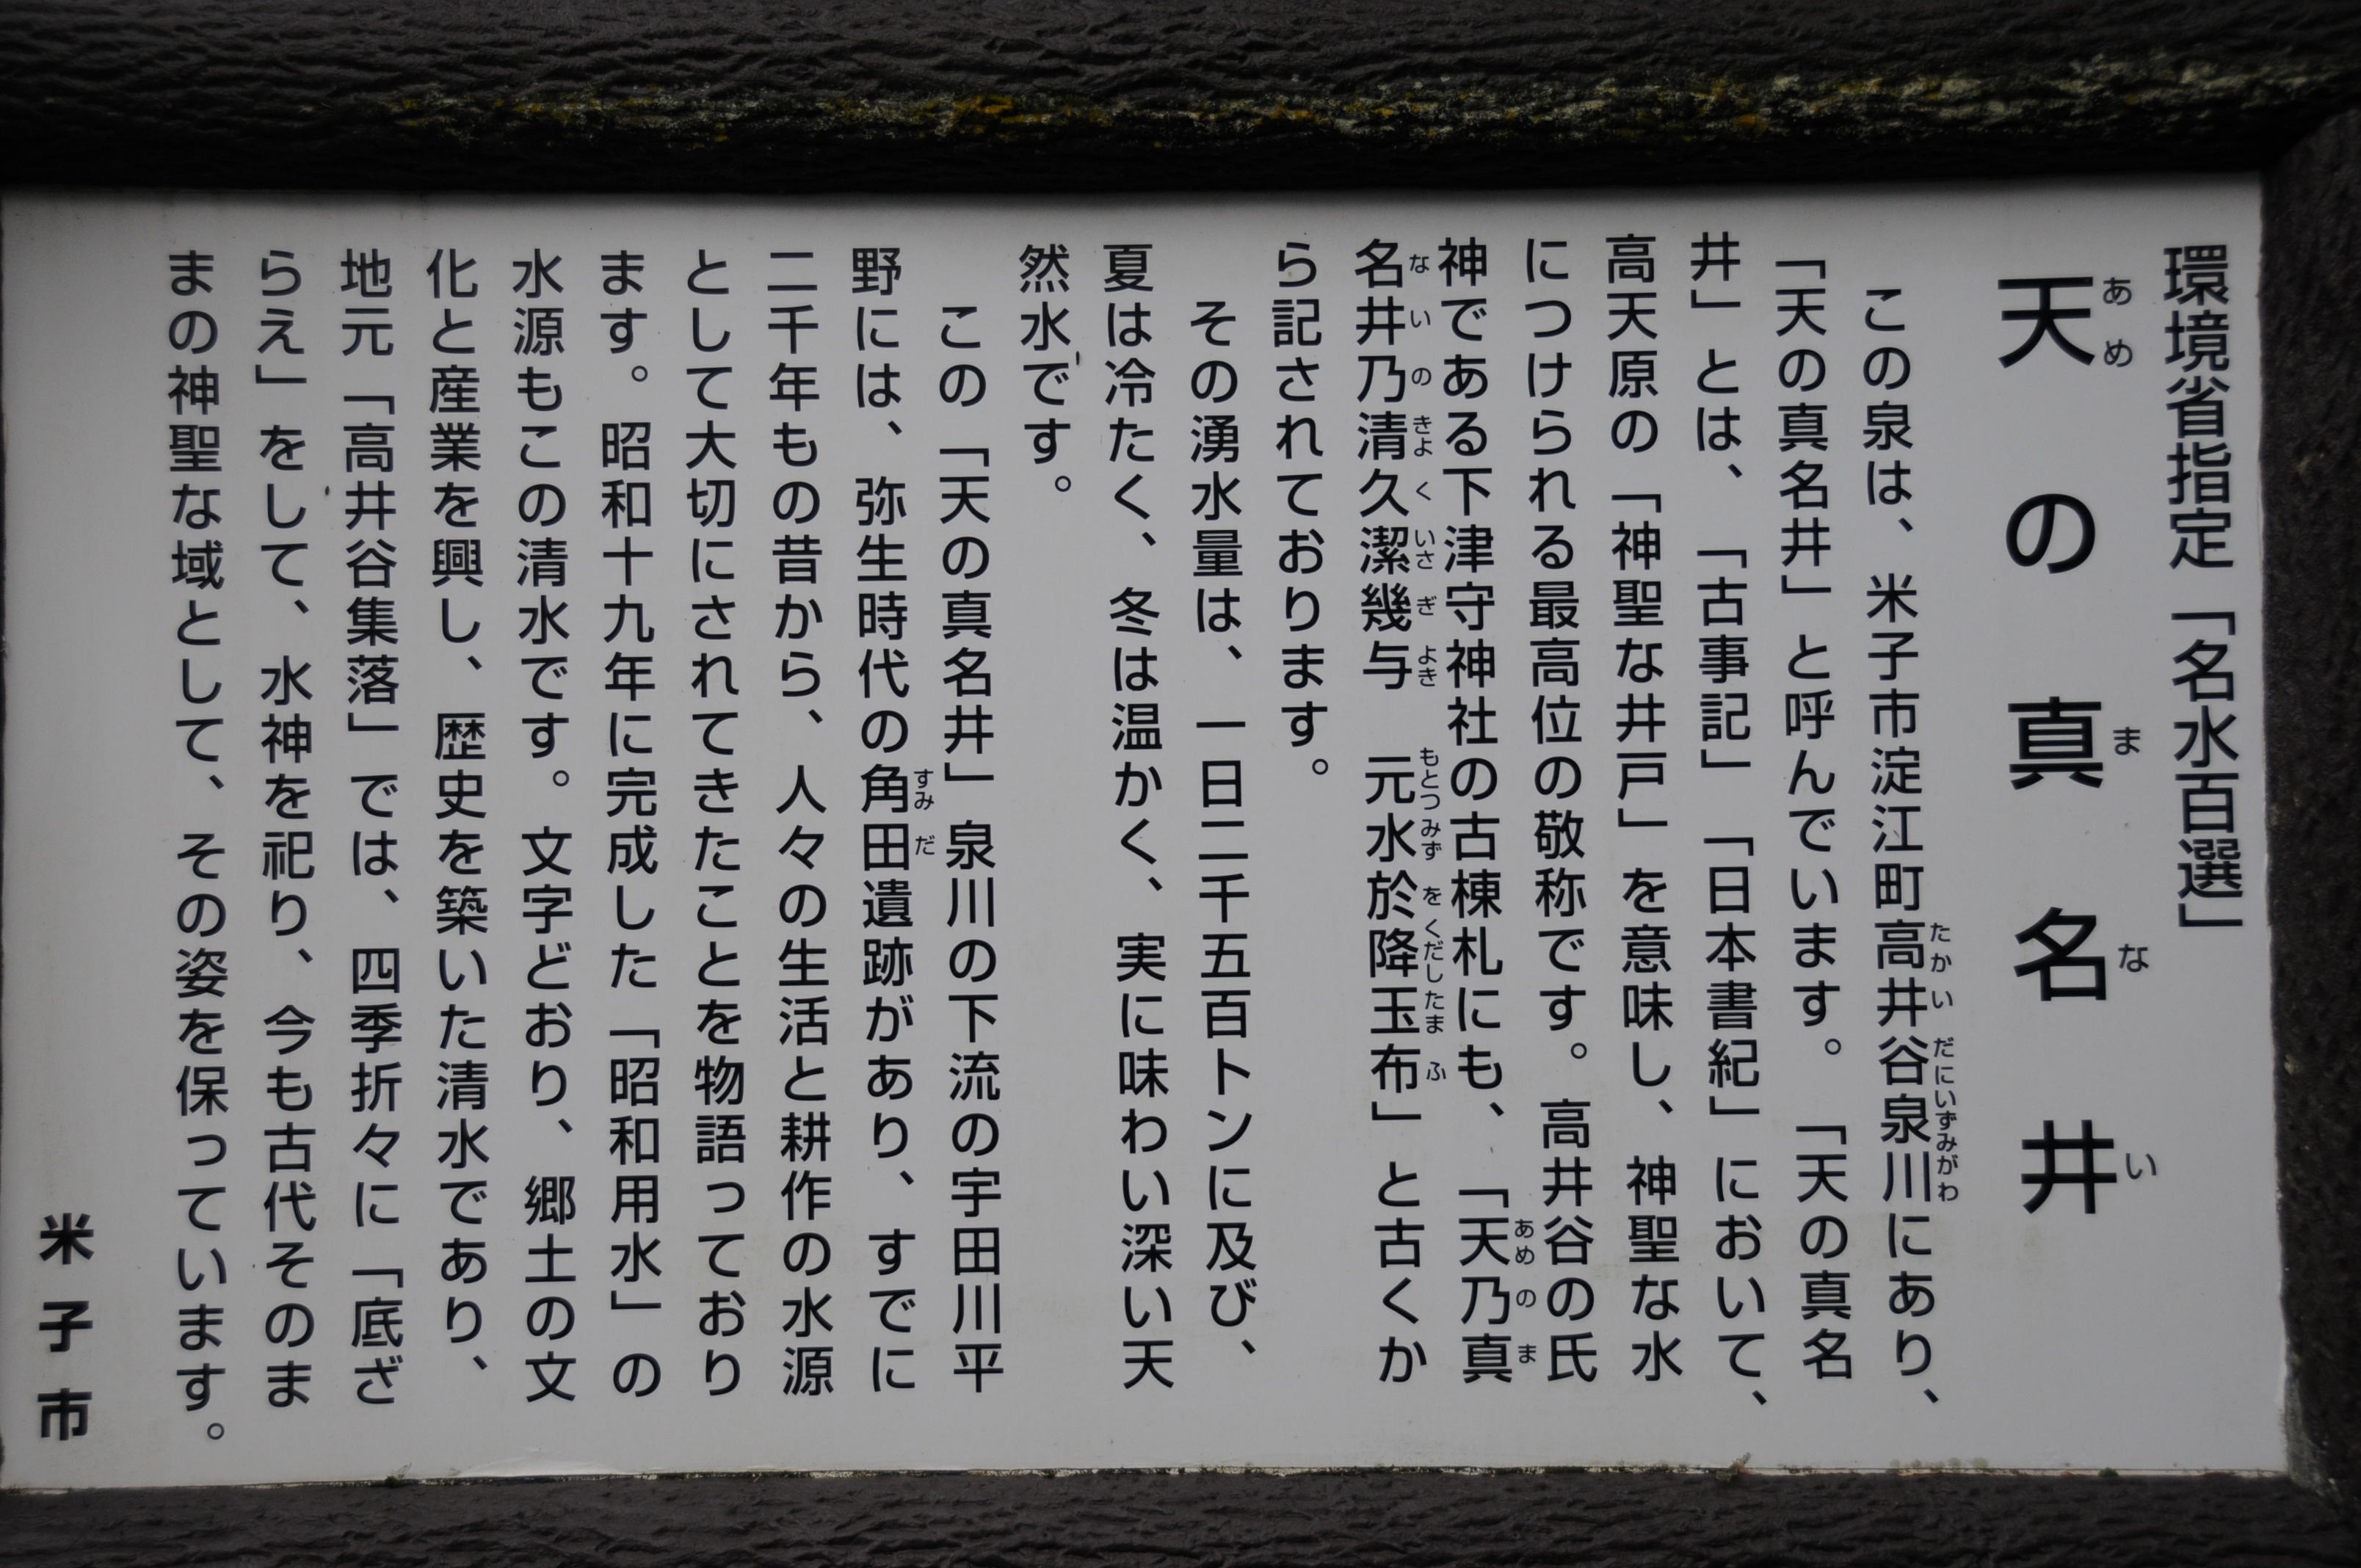 環境省指定「名水百選」
天の真名井
この泉は、米子市淀江町高井谷泉川にあり、
「天の真名井」と呼んでいます。「天の真名
井」とは、「古事記」「日本書紀」において、
高天原の「神聖な井戸」を意味し、神聖な水
につけられる最高位の敬称です。高井谷の氏
神である下津守神社の古棟札にも、「天乃真
名井乃清久潔幾与 元水於降玉布」と古くか
ら記されております。
その湧水量は、一日二千五百トンに及び、
夏は冷たく、冬は温かく、実に味わい深い天
然水です。
この「天の真名井」泉川の下流の宇田川平
野には、弥生時代の角田遺跡があり、すでに
二千年もの昔から、人々の生活と耕作の水源
として大切にされてきたことを物語っており
ます。昭和十九年に完成した「昭和用水」の
水源もこの清水です。文字どおり、郷土の文
化と産業を興し、歴史を築いた清水であり、
地元「高井谷集落」では、四季折々に「底ざ
らえ」をして、水神を祀り、今も古代そのま
まの神聖な域として、その姿を保っています。
米子市